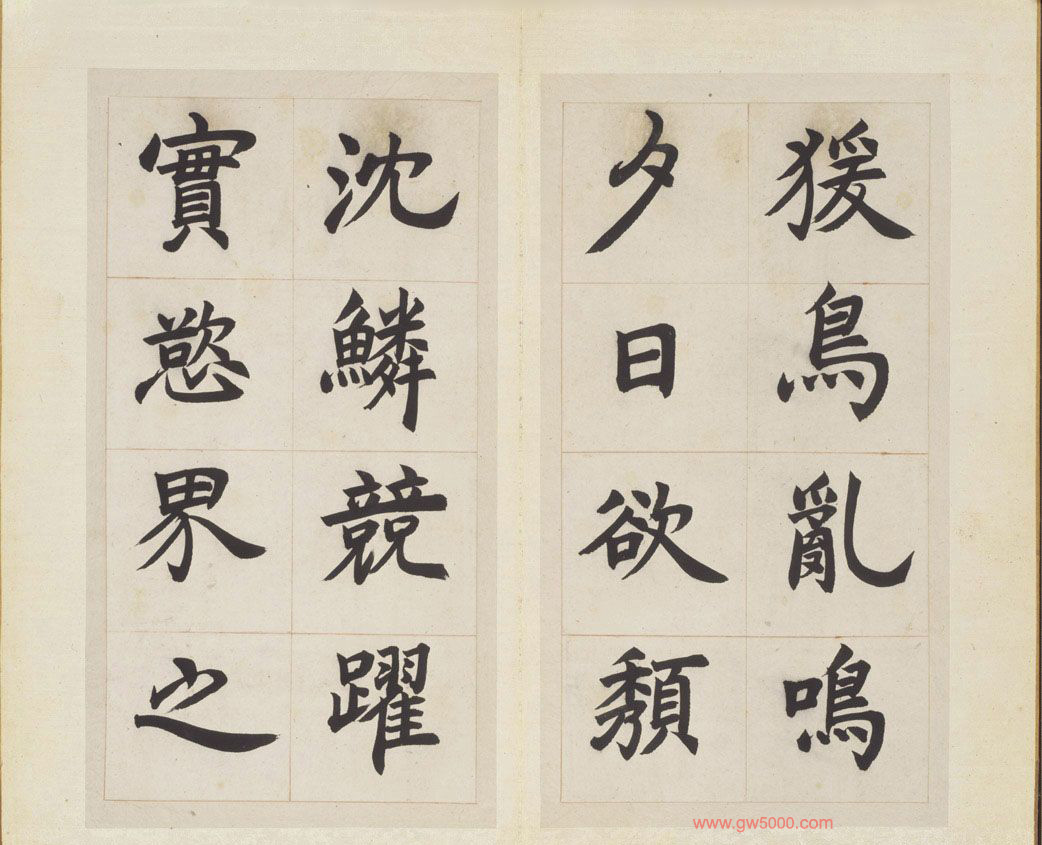 猨鳥亂鳴
夕日欲頹
沈鱗競躍
實慾界之
www.gw5000.com